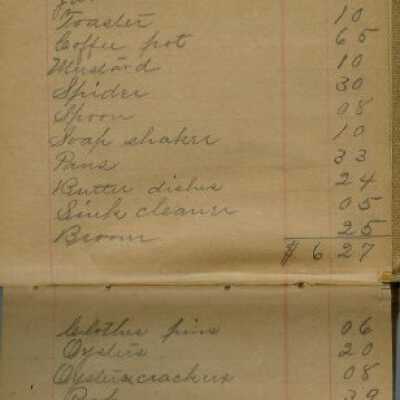 Toaster 10
Coffee pot 65
Mustard 10
Spider 30
Spoon 08
Soap shaker 10
Pans 33
Butter dishes 24
Sink cleaner 05
Broom 25
$ 6 27
Clothes pins 06
Oysters 20
Oysters crackers 08
39